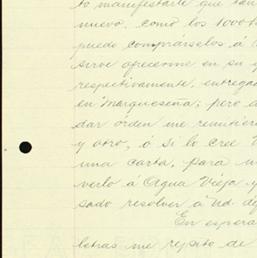 to manifestarle que tan
nuevo, como los 1000 
puedo comprárselos á
sirve ofrecerme en su
respectivamente, entrega
en Marqueseña; pero
dar órden me remitier
y otro, ó si lo cree
una carta, para
verlo á Agua Vieja y
sado resolver á Ud
En espera
letras me repito de